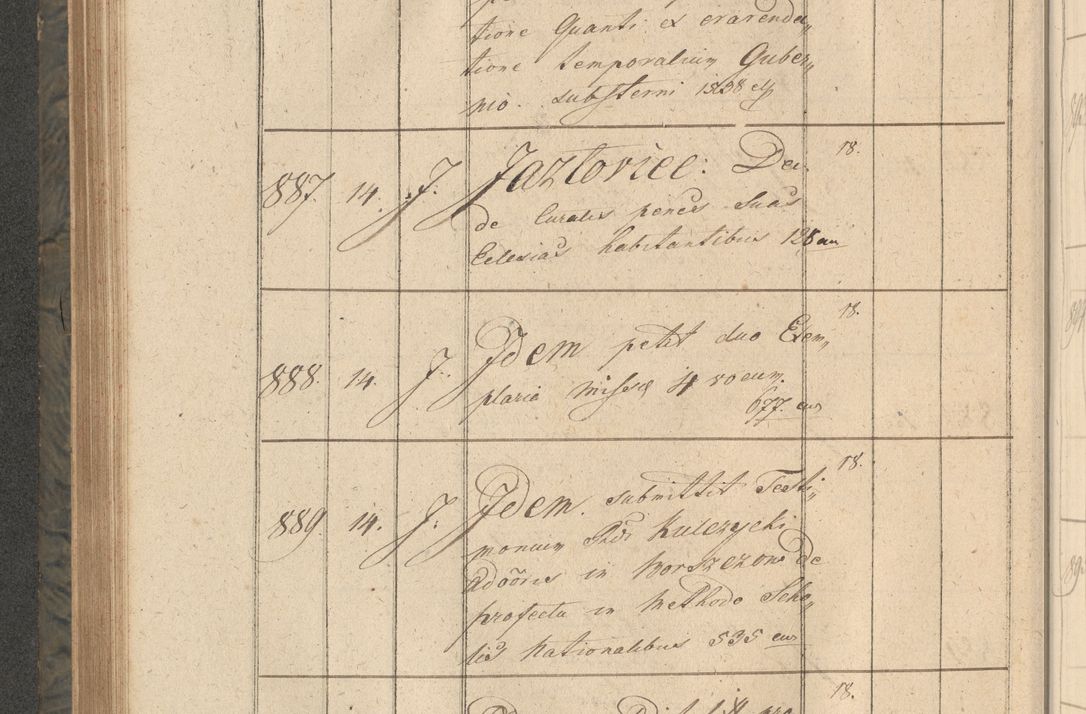 tione Quanti ex exarenda„
tione temporalium Guber„
nio substerni 1838 ej
887. 14. J. Jazloviec: De„ 18.
de Curatis penes suas
Eclesias habitantibus 128 au
888. 14. J. Idem petit duo Exem„ 18.
plaria missae 4 50 eum.
677. eus
889. 14. J. Idem. submittit Testi„ 18.
monium Kulczycki
Adõoris in Borszczow de
profectu in Methodo Scho„
lis Nationalibus 535 eus
18.